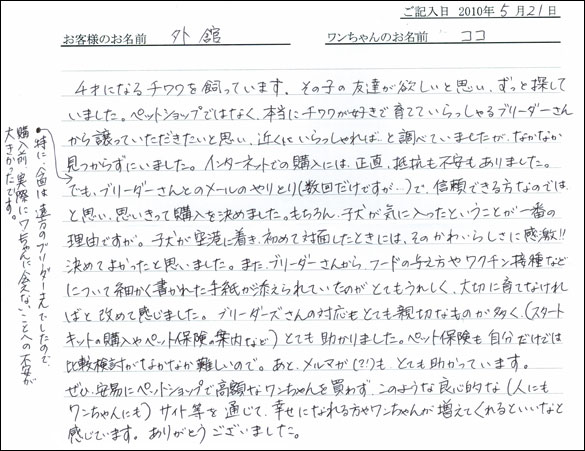 ご記入日 2010年5月21日
お客様のお名前 外舘 ワンちゃんのお名前 ココ
4才になるチワワを飼っています。その子の友達が欲しいと思い、ずっと探して
いました。ペットショップではなく、本当にチワワが好きで育てていらっしゃるブリーダーさん
から譲っていただきたいと思い、近くにいらっしゃれば、と調べていましたが、なかなか
見つからずにいました。インターネットでの購入には、正直、抵抗も不安もありました。
でも、ブリーダーさんとのメールのやりとり(数回だけですが…)で、信頼できる方なのでは
と思い、思いきって購入を決めました。もちろん、子犬が気に入ったということが一番の
理由ですが。子犬が空港に着き、初めて対面したときには、そのかわいらしさに感激!!
決めてよかったと思いました。また、ブリーダーさんから、フードの与え方やワクチン接種など
について細かく書かれた手紙が添えられていたのがとてもうれしく、大切に育てなけれ
ばと改めて感じました。ブリーダーズさんの対応もとても親切なものが多く、(スタート
キットの購入やペット保険の案内など)とても助かりました。ペット保険も自分だけでは
比較検討がなかなか難しいので。あと、メルマガ(?!)もとても助かっています。
ぜひ、安易にペットショップで高額なワンちゃんを買わず、このような良心的な(人にも
ワンちゃんにも)サイト等を通じて、幸せになれる方やワンちゃんが増えてくれるといいなと
感じています。ありがとうございました。
●特に、今回は遠方のブリーダーさんでしたので、
購入前、実際にワンちゃんに会えないことへの不安が
大きかったです。